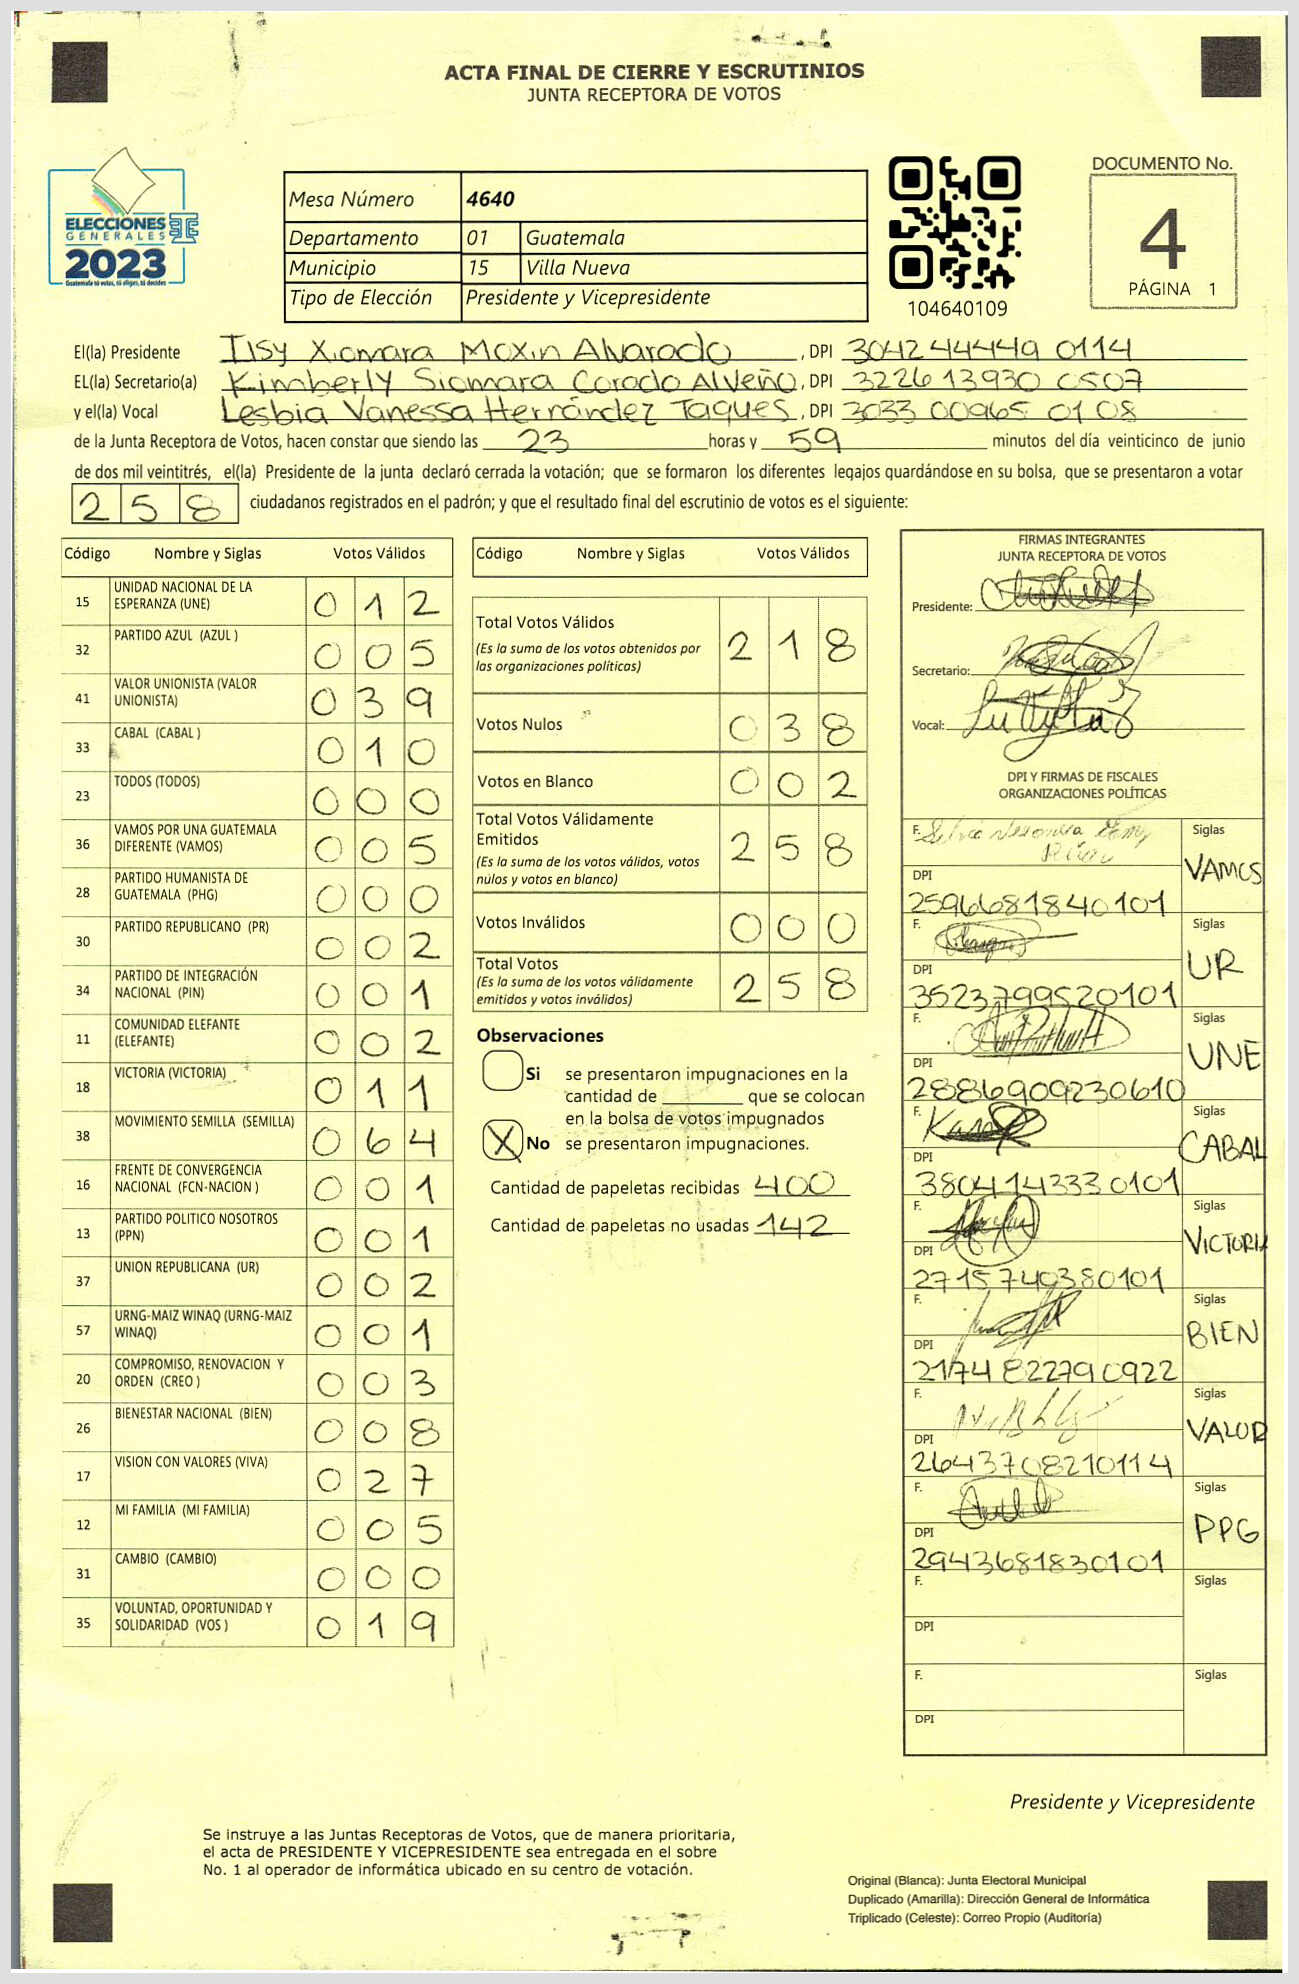 ACTA FINAL DE CIERRE Y ESCRUTINIOS
JUNTA RECEPTORA DE VOTOS
ELECCIONES
GENERALES
2023
Guatemala tú votas, tú eliges, tú decides
Mesa Número 4640
Departamento 01 Guatemala
Municipio 15 Villa Nueva
Tipo de Elección Presidente y Vicepresidente
104640109
DOCUMENTO No.
4
PÁGINA 1
El(la) Presidente Ilsy Xiomara Moxin Alvarado, DPI 3042 44449 0114
EL(la) Secretario(a) Kimberly Siomara Corado Alveño, DPI 3226 13930 0507
y el(la) Vocal Lesbia Vanessa Hernández Taques, DPI 3033 00965 0108
de la Junta Receptora de Votos, hacen constar que siendo las 23 horas y 59 minutos del día veinticinco de junio
de dos mil veintitrés, el(la) Presidente de la junta declaró cerrada la votación; que se formaron los diferentes legajos quardándose en su bolsa, que se presentaron a votar
258 ciudadanos registrados en el padrón; y que el resultado final del escrutinio de votos es el siguiente:
Código Nombre y Siglas Votos Válidos
15 UNIDAD NACIONAL DE LA ESPERANZA (UNE) 012
32 PARTIDO AZUL (AZUL ) 005
41 VALOR UNIONISTA (VALOR UNIONISTA) 039
33 CABAL (CABAL ) 010
23 TODOS (TODOS) 000
36 VAMOS POR UNA GUATEMALA DIFERENTE (VAMOS) 005
28 PARTIDO HUMANISTA DE GUATEMALA (PHG) 000
30 PARTIDO REPUBLICANO (PR) 002
34 PARTIDO DE INTEGRACIÓN NACIONAL (PIN) 001
11 COMUNIDAD ELEFANTE (ELEFANTE) 002
18 VICTORIA (VICTORIA) 011
38 MOVIMIENTO SEMILLA (SEMILLA) 064
16 FRENTE DE CONVERGENCIA NACIONAL (FCN-NACION ) 001
13 PARTIDO POLITICO NOSOTROS (PPN) 001
37 UNION REPUBLICANA (UR) 002
57 URNG-MAIZ WINAQ (URNG-MAIZ WINAQ) 001
20 COMPROMISO, RENOVACION Y ORDEN (CREO ) 003
26 BIENESTAR NACIONAL (BIEN) 008
17 VISION CON VALORES (VIVA) 027
12 MI FAMILIA (MI FAMILIA) 005
31 CAMBIO (CAMBIO) 000
35 VOLUNTAD, OPORTUNIDAD Y SOLIDARIDAD (VOS ) 019
Código Nombre y Siglas Votos Válidos
Total Votos Válidos 218
(Es la suma de los votos obtenidos por
las organizaciones políticas)
Votos Nulos 038
Votos en Blanco 002
Total Votos Válidamente
Emitidos 258
(Es la suma de los votos válidos, votos
nulos y votos en blanco)
Votos Inválidos 000
Total Votos 258
(Es la suma de los votos válidamente
emitidos y votos inválidos)
Observaciones
Si se presentaron impugnaciones en la
cantidad de ________ que se colocan
en la bolsa de votos impugnados
X No se presentaron impugnaciones.
Cantidad de papeletas recibidas 400
Cantidad de papeletas no usadas 142
FIRMAS INTEGRANTES
JUNTA RECEPTORA DE VOTOS
Presidente:
Secretario:
Vocal:
DPI Y FIRMAS DE FISCALES
ORGANIZACIONES POLÍTICAS
F. Siglas
VAMOS
DPI
2596681840101
F. Siglas
UR
DPI
3523799520101
F. Siglas
UNE
DPI
2886909230610
F. Siglas
CABAL
DPI
3804143330101
F. Siglas
VICTORIA
DPI
2715740380101
F. Siglas
BIEN
DPI
2174822790922
F. Siglas
VALOR
DPI
2643708210114
F. Siglas
PPG
DPI
2943681830101
F. Siglas
DPI
F. Siglas
DPI
Presidente y Vicepresidente
Se instruye a las Juntas Receptoras de Votos, que de manera prioritaria,
el acta de PRESIDENTE Y VICEPRESIDENTE sea entregada en el sobre
No. 1 al operador de informática ubicado en su centro de votación.
Original (Blanca): Junta Electoral Municipal
Duplicado (Amarilla): Dirección General de Informática
Triplicado (Celeste): Correo Propio (Auditoría)